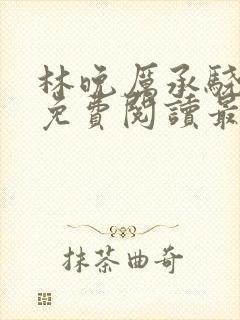 林晚厲承駿
免費閱讀最
抹茶曲奇